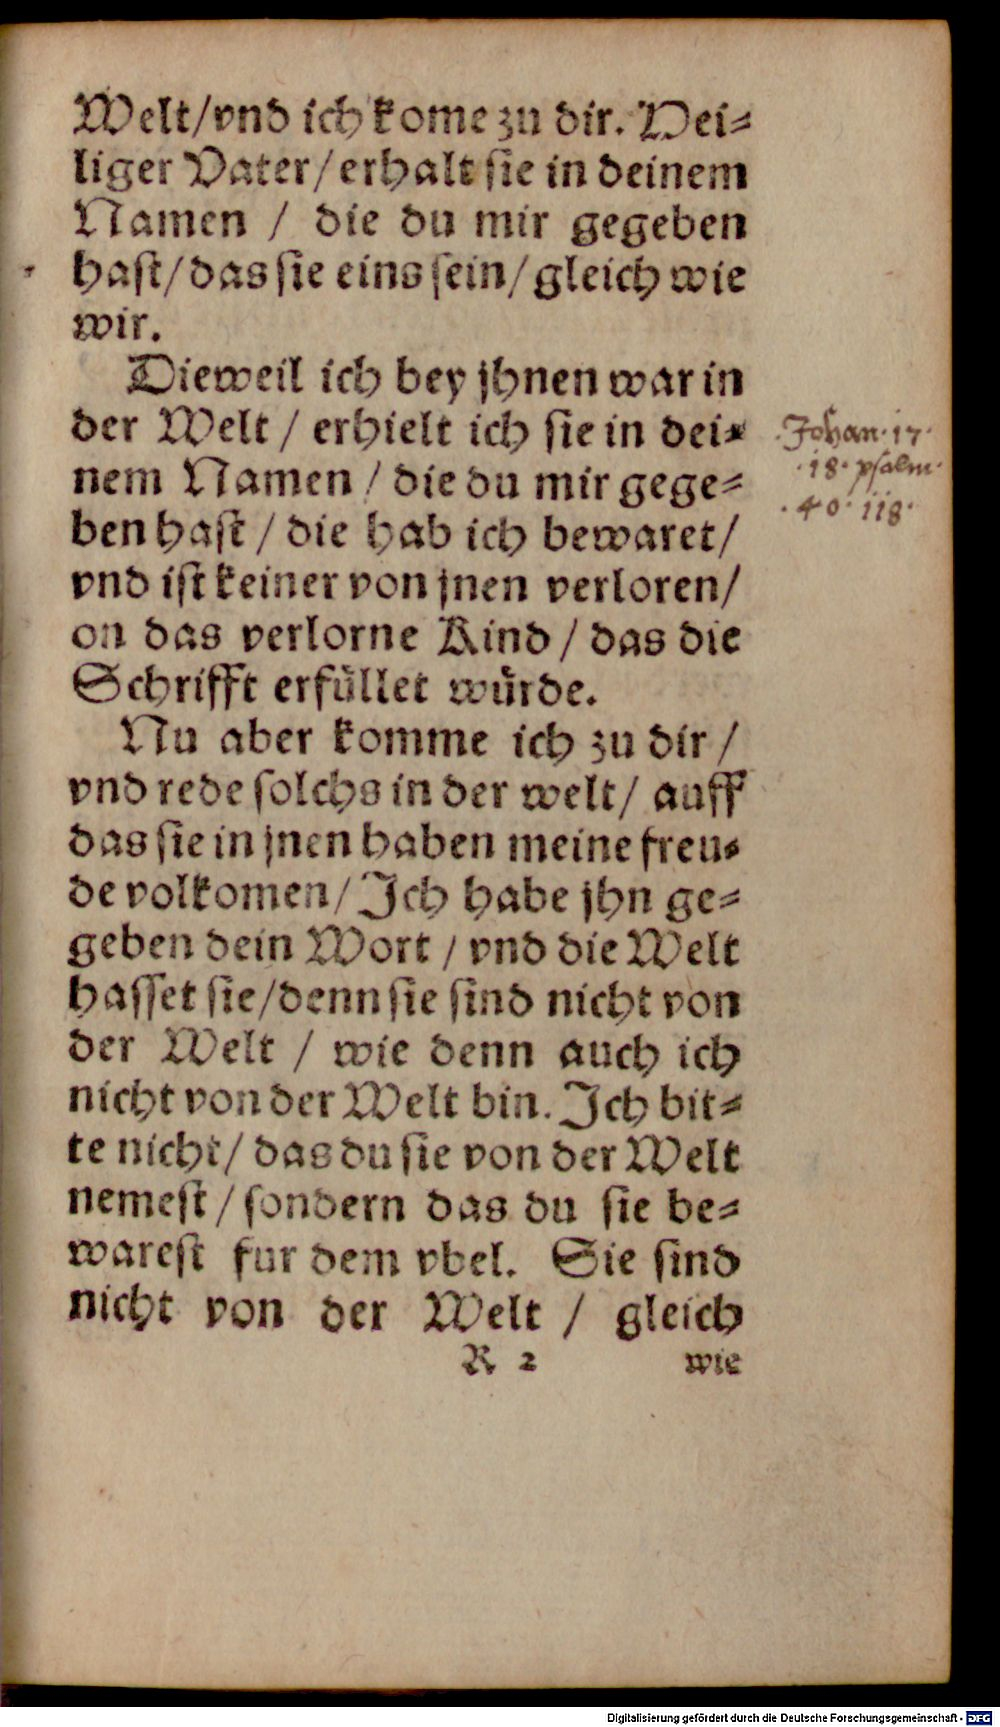 Welt/vnd ich kome zu dir. Hei⸗
liger Vater/erhalt ſie in deinem
Namen / die du mir gegeben
haſt/das ſie eins ſein/gleich wie
wir.
Dieweil ich bey jhnen war in
der Welt / erhielt ich ſie in dei⸗
nem Namen / die du mir gege⸗
ben haſt / die hab ich bewaret/
vnd iſt keiner von jnen verloren/
on das verlorne Kind / das die
Schrifft erfüllet würde.
Nu aber komme ich zu dir /
vnd rede ſolchs in der welt/ auff
das ſie in jnen haben meine freu⸗
de volkomen/ Ich habe jhn ge⸗
geben dein Wort / vnd die Welt
haſſet ſie/denn ſie ſind nicht von
der Welt / wie denn auch ich
nicht von der Welt bin. Ich bit⸗
te nicht/ das du ſie von der Welt
nemeſt / ſondern das du ſie be⸗
wareſt fur dem vbel. Sie ſind
nicht von der Welt / gleich
R 2 wie
Johan· 17·
·18· psalm·
·40· 118·
Digitalisierung gefördert durch die Deutsche Forschungsgemeinschaft - DFG